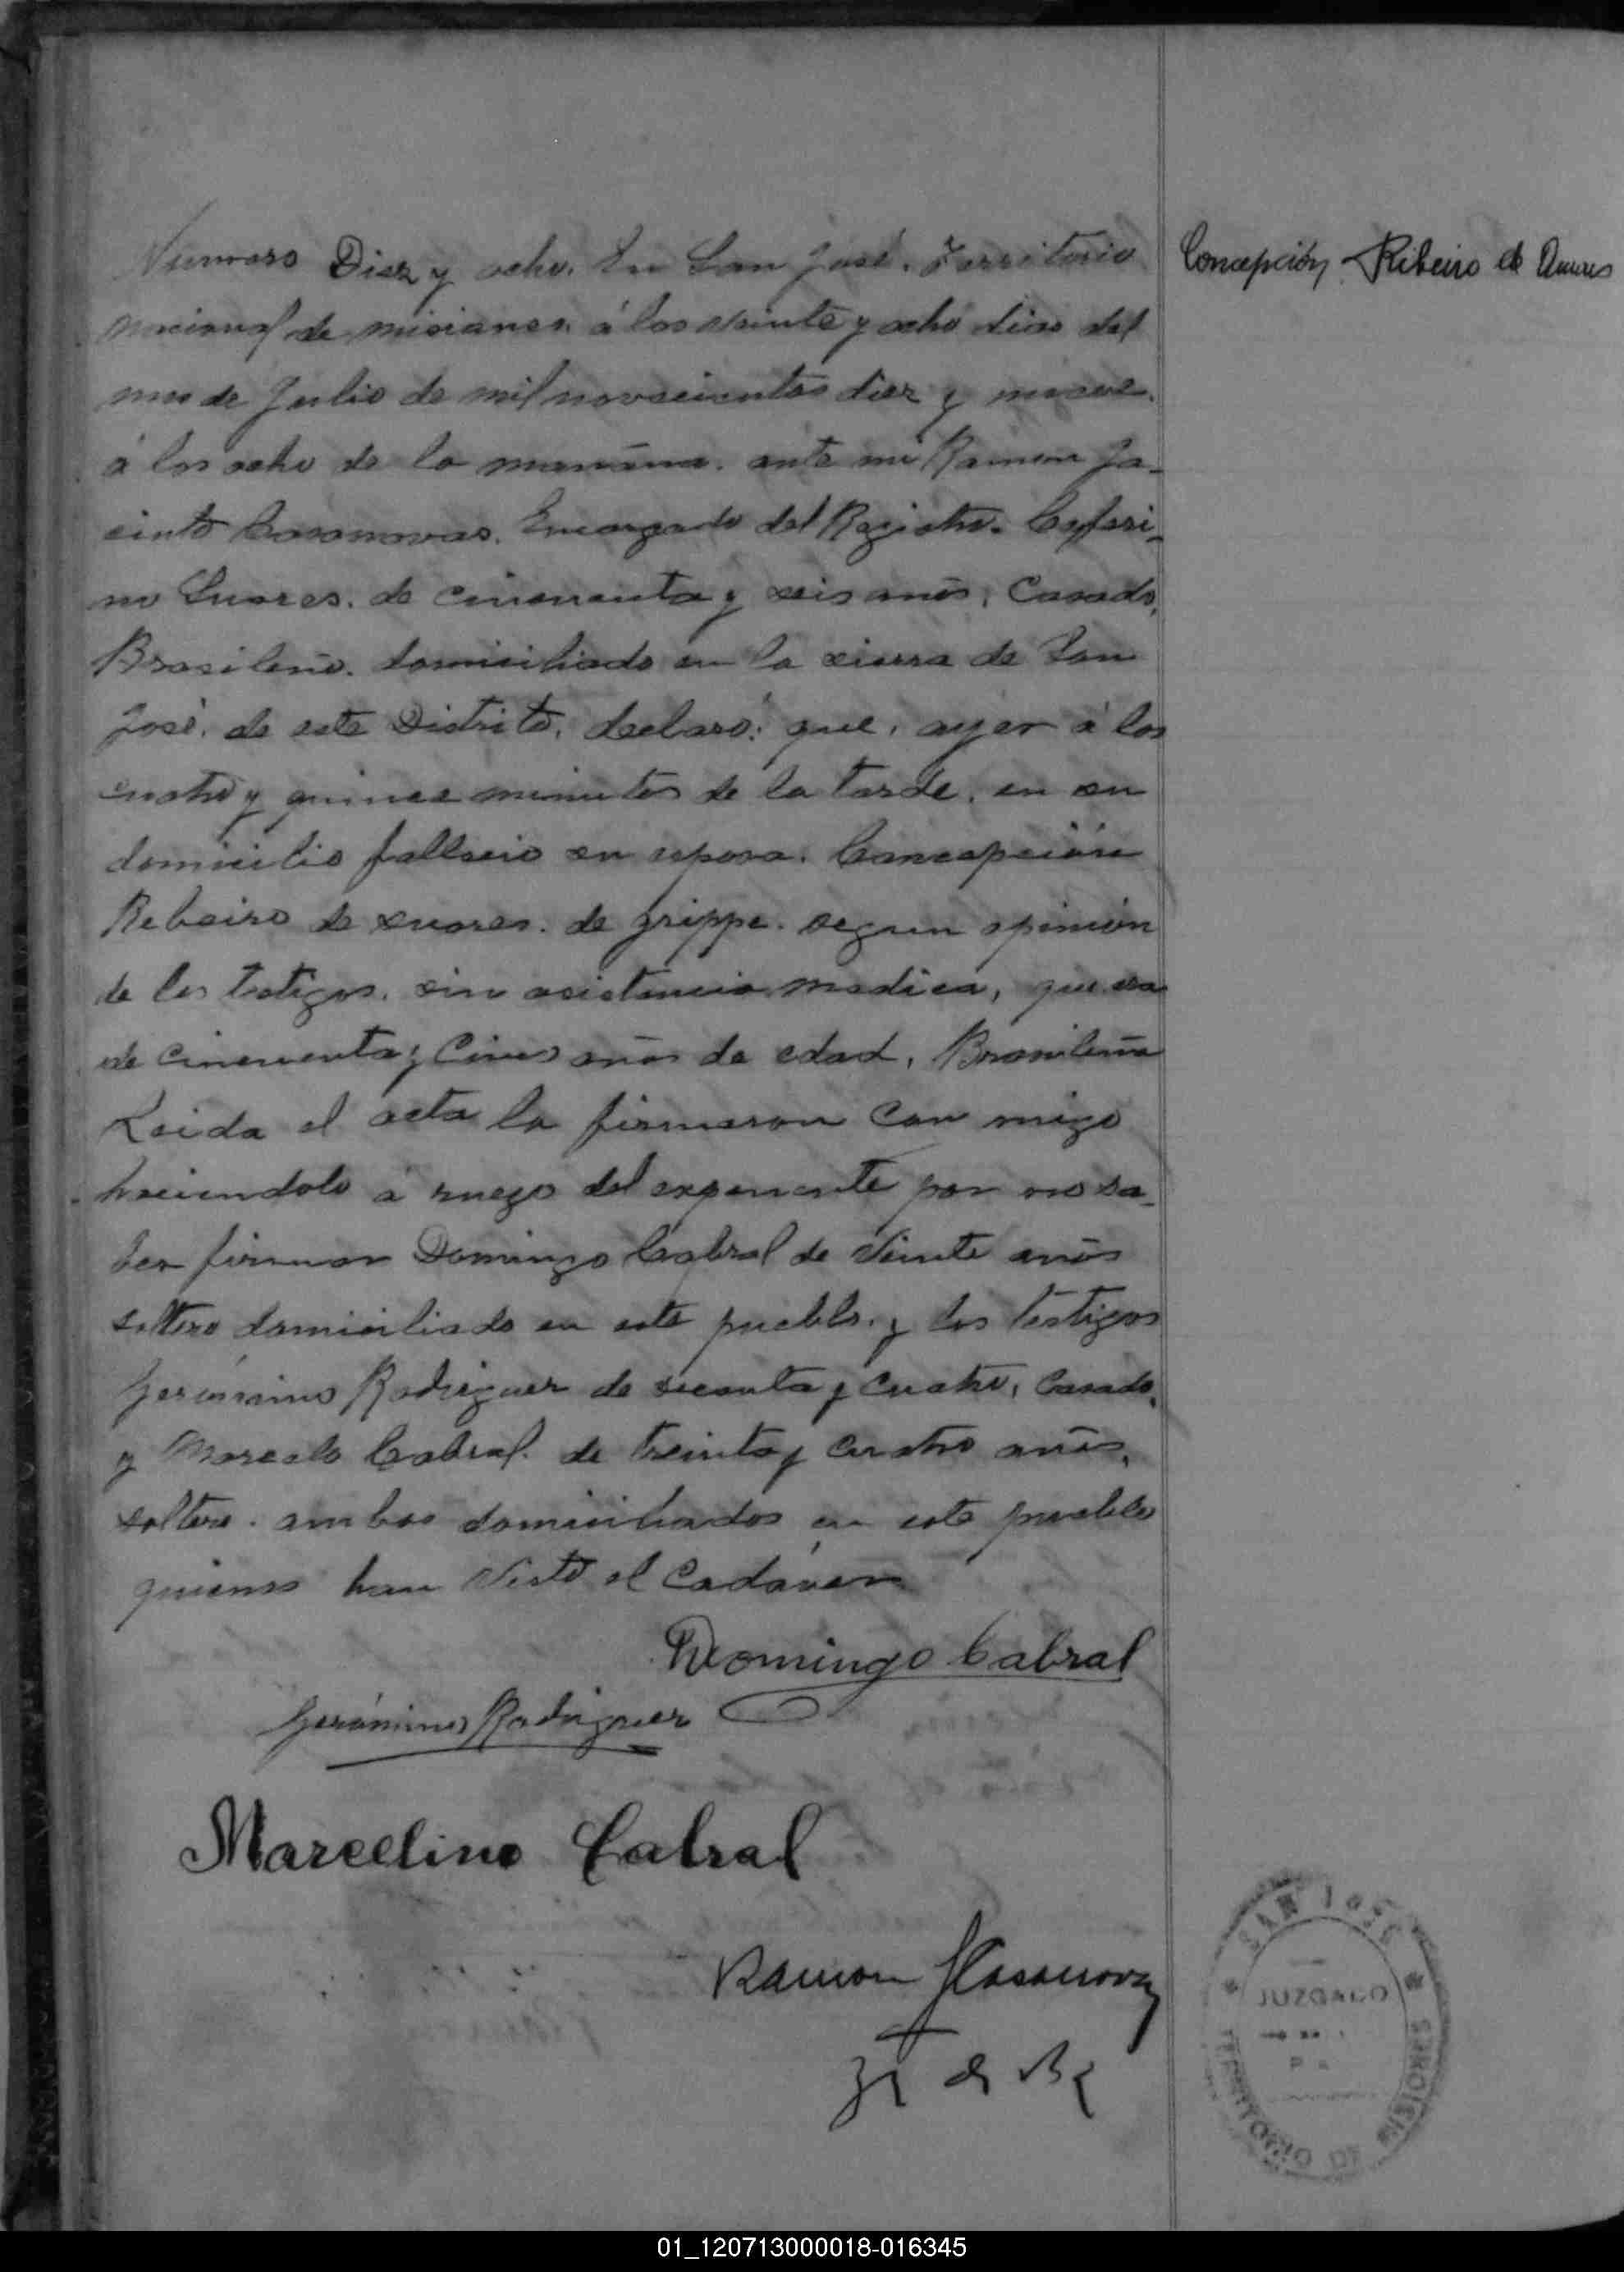 Numero Diez y ocho. En San José. Territorio
Nacional de Misiones. á los veinte y ocho dias del
mes de Julio de mil novecientos diez y nueve.
á las ocho de la mañana. ante mi Ramon Ja-
cinto Casanovas. Encargado del Registro. Ceferi-
no Suares. de cincuenta y seis años, Casado,
Brasileño. domiciliado en la sierra de San
José. de este Distrito. declaró: que, ayer á las
cuatro y quince minutos de la tarde. en su
domicilio fallecio su esposa. Concepción
Rebeiro de suares. de grippe. segun opinión
de los testigos. sin asistencia medica, que era
de cincuenta y Cinco años de edad, Brasileña
Leida el acta la firmaron Con migo
haciendolo á ruego del exponente por no sa-
ber firmar Domingo Cabral de Veinte años
soltero domiciliado en este pueblo. y los testigos
Gerónimo Rodriguez de secenta y Cuatro, Casado,
y Marcelo Cabral. de treinta y Cuatro años,
soltero. ambos domiciliados en este pueblo
quienes han Visto el Cadáver
Domingo Cabral
Gerónimo Rodriguez
Marcelino Cabral
Ramon J Casanovas
Concepción Ribeiro de
SAN JOSE
JUZGADO
DE
P A
TERRITORIO DE MISIONES
01_120713000018-016345